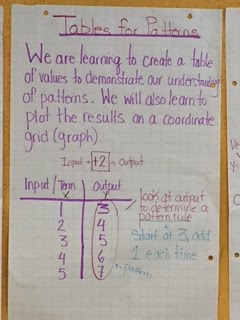 Tables for Patterns
We are learning to create a table
of values to demonstrate our understanding
of patterns. We will also learn to
plot the results on a coordinate
grid (graph).
Input → +2 → Output
Input / Term Output
x y
1 3
2 4
3 5
4 6
5 7
look at output
to determine a
pattern rule
Start at 3, add
1 each time
← pattern